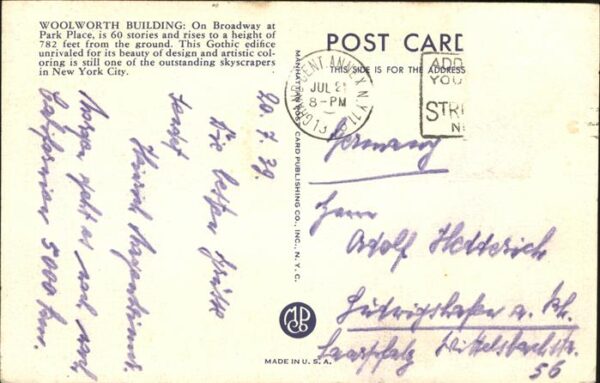 WOOLWORTH BUILDING: On Broadway at
Park Place, is 60 stories and rises to a height of
782 feet from the ground. This Gothic edifice
unrivaled for its beauty of design and artistic col-
oring is still one of the outstanding skyscrapers
in New York City.
20. 7. 39.
Die besten Grüße
sendet
Heinrich
Morgen geht es noch nach
Californien 5000 km.
MANHATTAN POST CARD PUBLISHING CO., INC., N. Y. C.
POST CARD
THIS SIDE IS FOR THE ADDRESS
GRAND CENT. ANNEX N.Y.
JUL 21
8-PM
13
ADD
YOU
STR
N
Germany
Herrn
Adolf Hedderich
Ludwigshafen a. Rh.
Saarpfalz Wittelsbachstr.
56
MPC
MADE IN U. S. A.